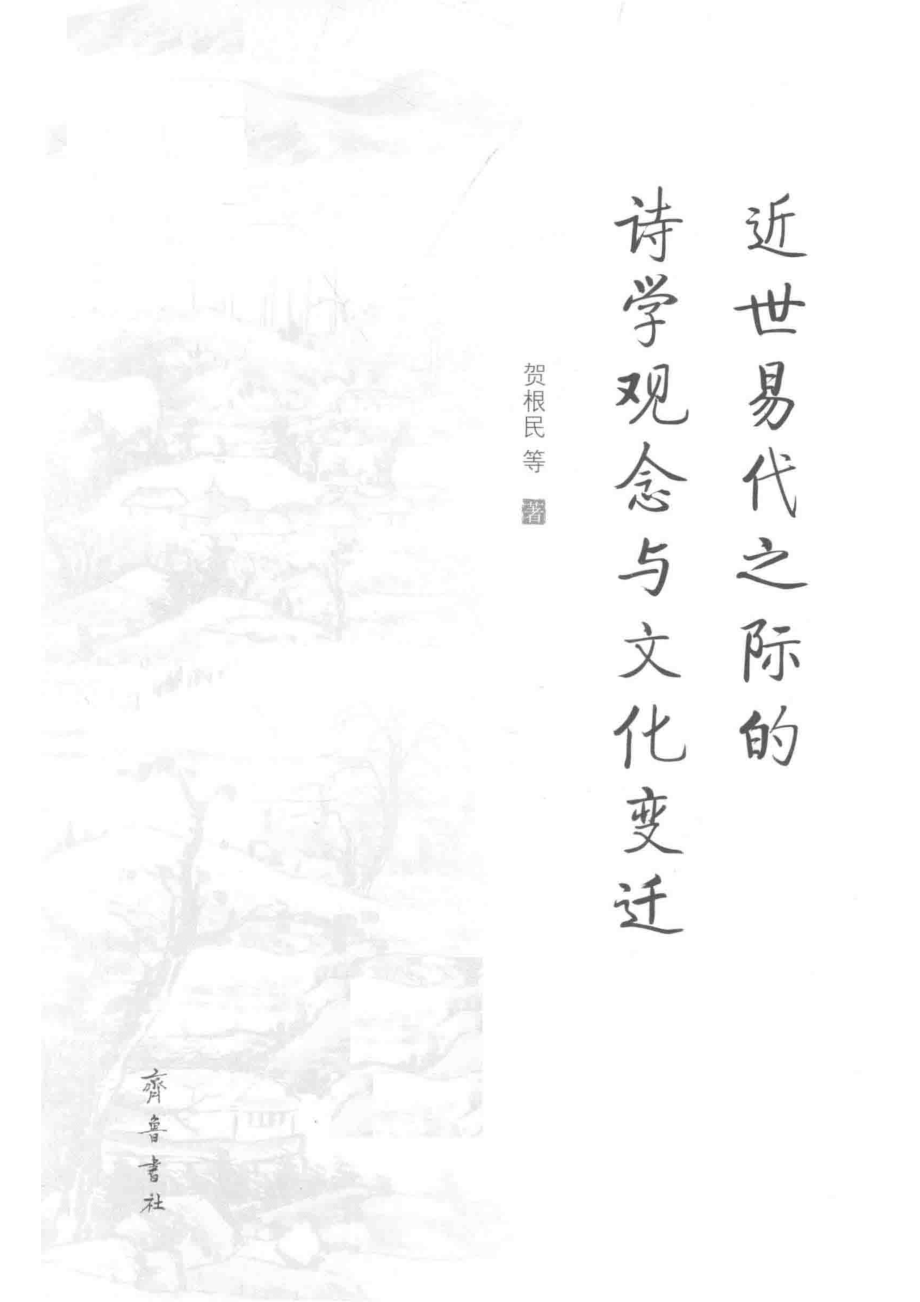 近世易代之际的
诗学观念与文化变迁
贺根民 等 著
齊鲁書社